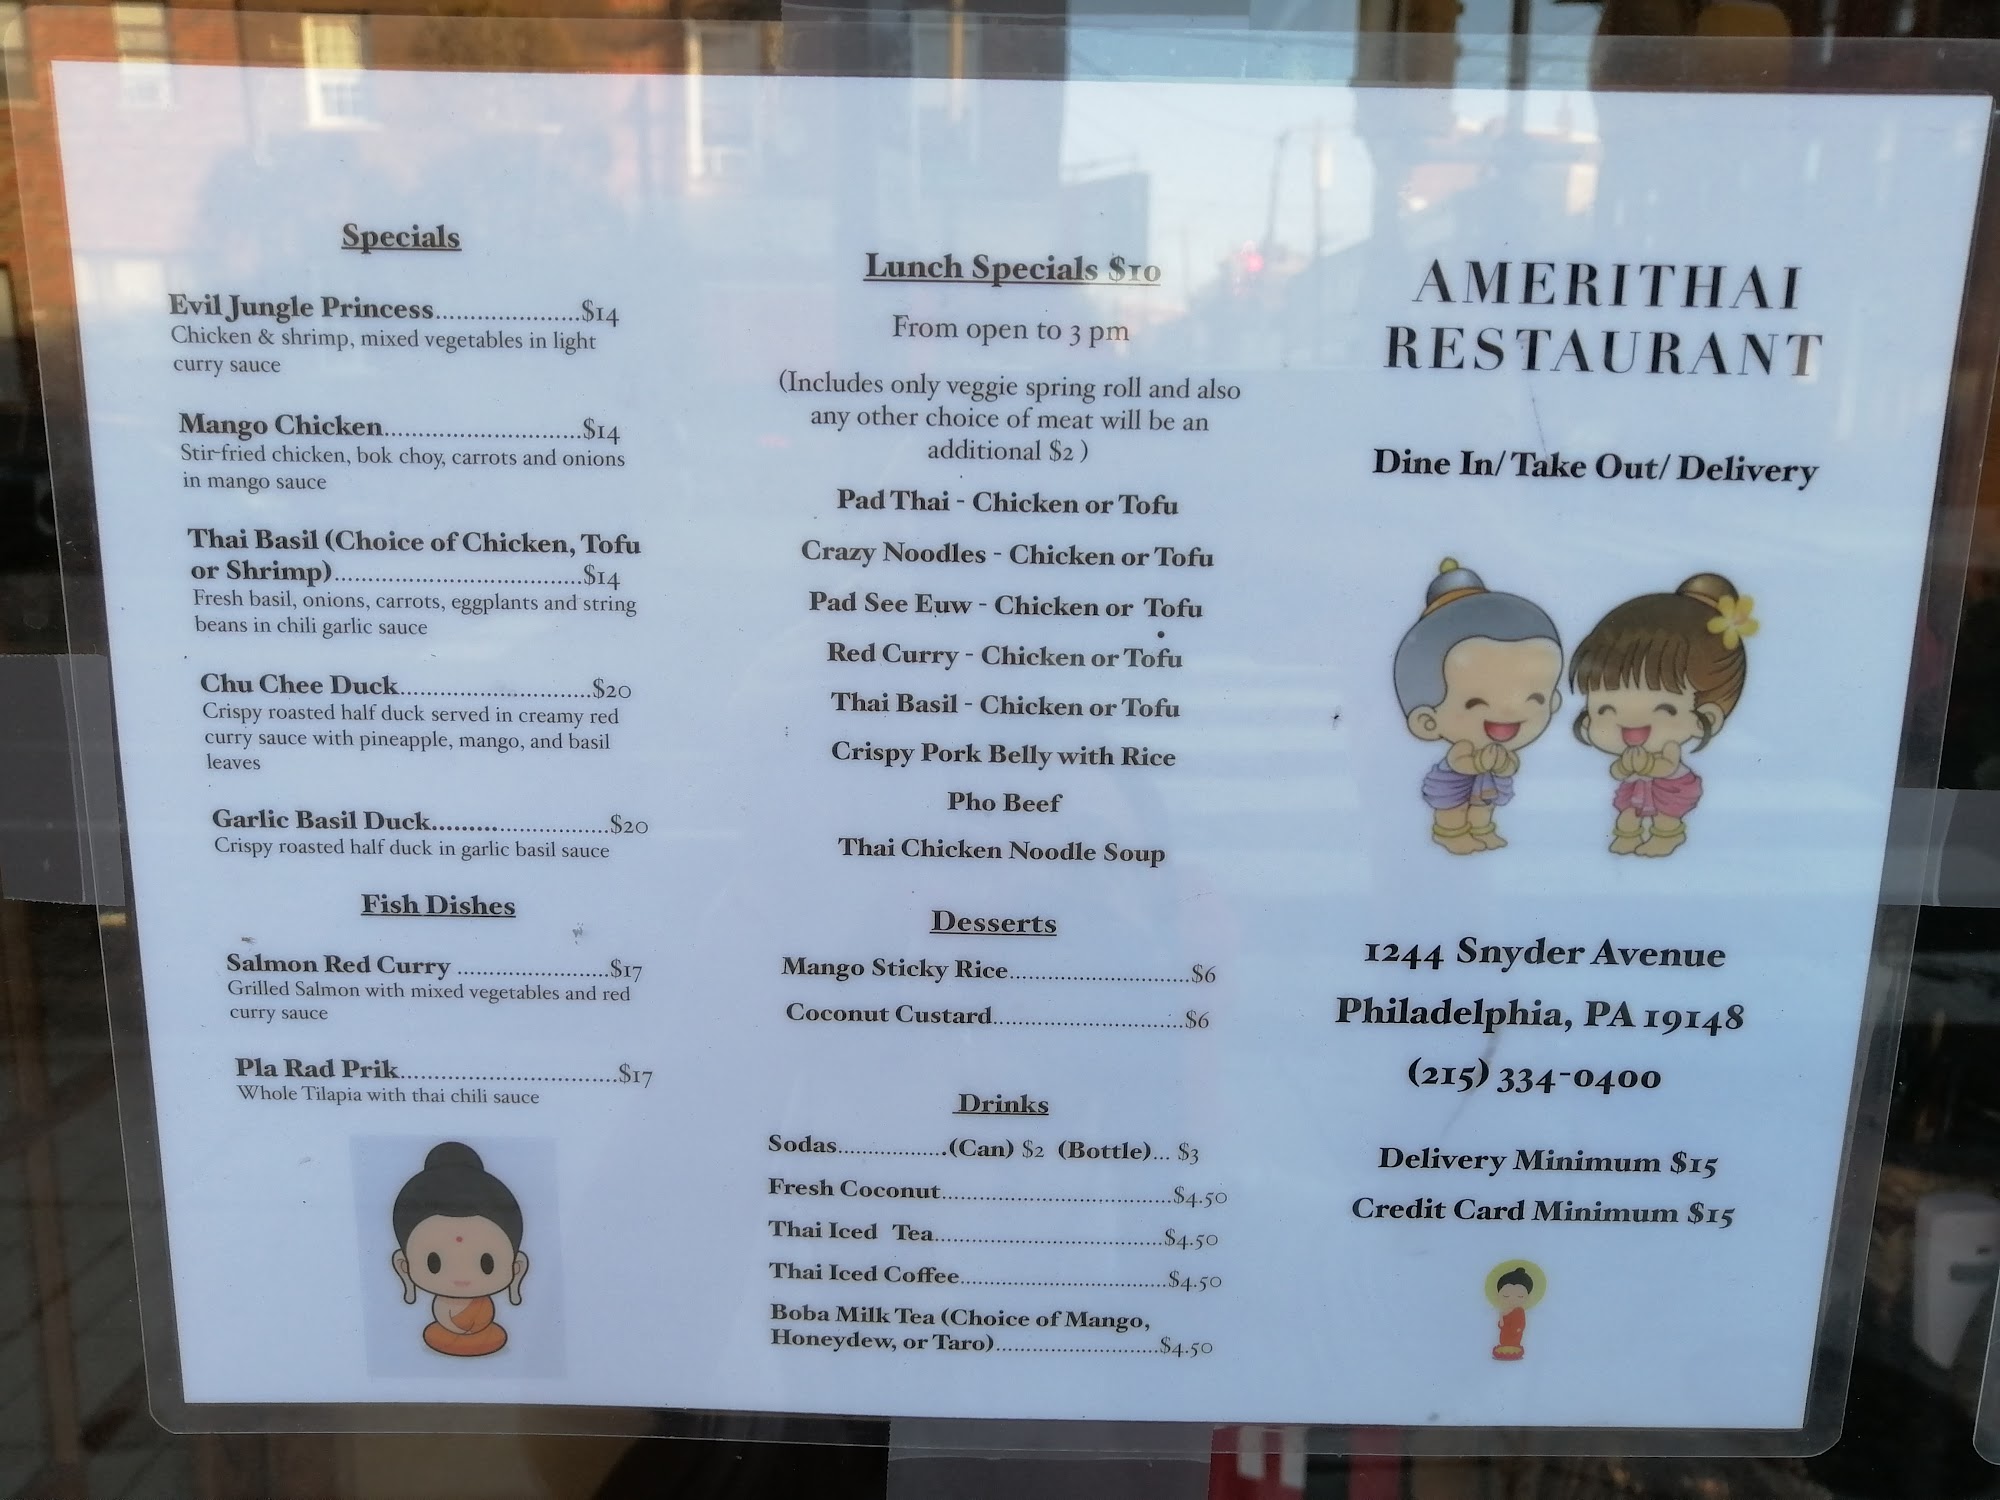 Specials
Evil Jungle Princess.....................$14
Chicken & shrimp, mixed vegetables in light
curry sauce
Mango Chicken............................$14
Stir-fried chicken, bok choy, carrots and onions
in mango sauce
Thai Basil (Choice of Chicken, Tofu
or Shrimp)...................................$14
Fresh basil, onions, carrots, eggplants and string
beans in chili garlic sauce
Chu Chee Duck...........................$20
Crispy roasted half duck served in creamy red
curry sauce with pineapple, mango, and basil
leaves
Garlic Basil Duck.........................$20
Crispy roasted half duck in garlic basil sauce
Fish Dishes
Salmon Red Curry ......................$17
Grilled Salmon with mixed vegetables and red
curry sauce
Pla Rad Prik...............................$17
Whole Tilapia with thai chili sauce
Lunch Specials $10
From open to 3 pm
(Includes only veggie spring roll and also
any other choice of meat will be an
additional $2 )
Pad Thai - Chicken or Tofu
Crazy Noodles - Chicken or Tofu
Pad See Euw - Chicken or Tofu
Red Curry - Chicken or Tofu
Thai Basil - Chicken or Tofu
Crispy Pork Belly with Rice
Pho Beef
Thai Chicken Noodle Soup
Desserts
Mango Sticky Rice..........................$6
Coconut Custard............................$6
Drinks
Sodas..................(Can) $2 (Bottle)... $3
Fresh Coconut.................................$4.50
Thai Iced Tea.................................$4.50
Thai Iced Coffee..............................$4.50
Boba Milk Tea (Choice of Mango,
Honeydew, or Taro)........................$4.50
AMERITHAI
RESTAURANT
Dine In/ Take Out/ Delivery
1244 Snyder Avenue
Philadelphia, PA 19148
(215) 334-0400
Delivery Minimum $15
Credit Card Minimum $15